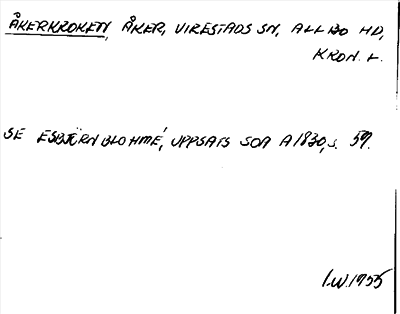 ÅKERKROKEN, ÅKER, VIRESTADS SN, ALLBO HD,
KRON. L.
SE ESBJÖRN BLOHMÉ, UPPSATS SOA A1830, s. 59.
I.W. 1955